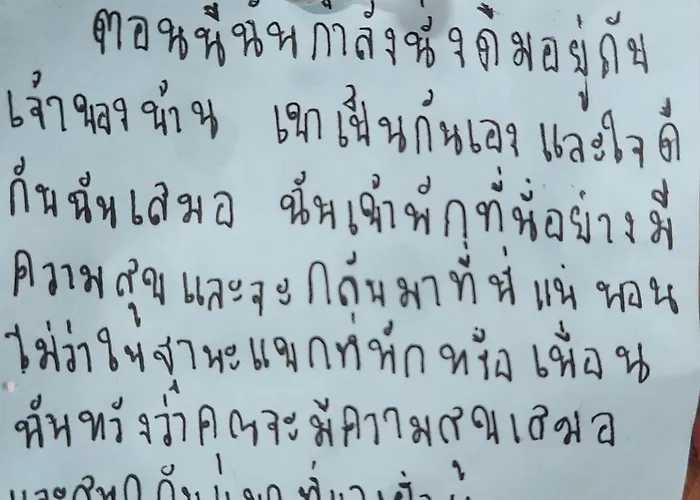 ตอนนี้ฉันกำลังนั่งดื่มอยู่กับ
เจ้าของบ้าน เขาเป็นกันเอง และใจดี
กับฉันเสมอ ฉันเข้าพักที่นี่อย่างมี
ความสุข และจะกลับมาที่นี่ แน่นอน
ไม่ว่าในฐานะแขกที่พักหรือเพื่อน
ฉันหวังว่าคุณจะมีความสุขเสมอ
และสนุกกับ